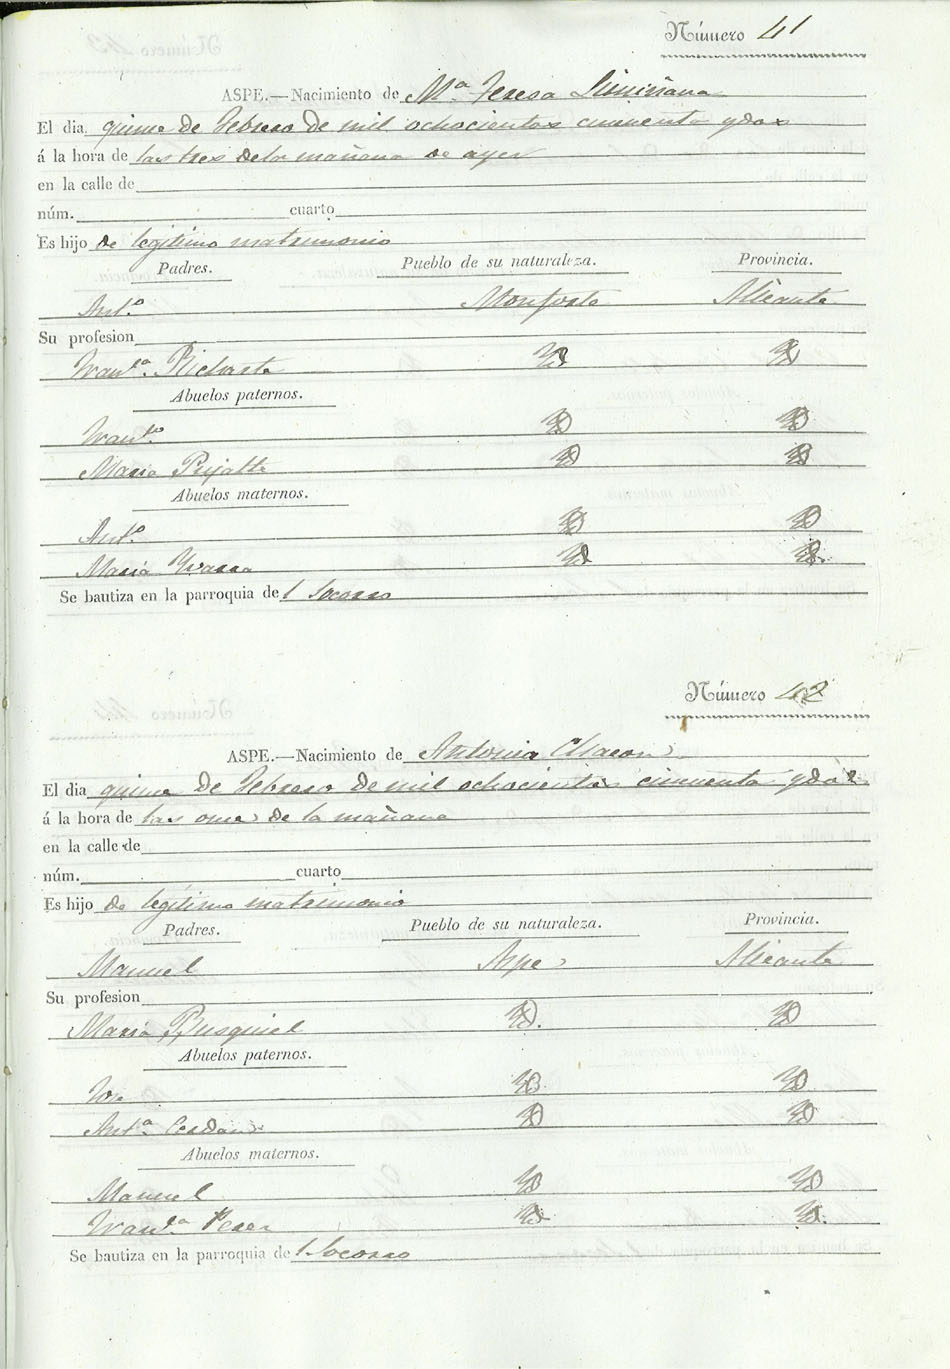 Número 41
ASPE.—Nacimiento de Mª. Teresa Limiñana
El dia quince de Febrero de mil ochocientos cincuenta y dos
á la hora de las tres de la mañana de ayer
en la calle de
núm. cuarto
Es hijo de legitimo matrimonio
Padres. Pueblo de su naturaleza. Provincia.
Antº. Monforte Alicante
Su profesion
Franca. Richarte Id Id
Abuelos paternos.
Franco. Id Id
Maria Pujalte Id Id
Abuelos maternos.
Antº. Id Id
Maria Yvarra Id Id.
Se bautiza en la parroquia del Socorro
Número 42
ASPE.—Nacimiento de Antonia Chacon
El dia quince de Febrero de mil ochocientos cincuenta y dos
á la hora de las once de la mañana
en la calle de
núm. cuarto
Es hijo de legitimo matrimonio
Padres. Pueblo de su naturaleza. Provincia.
Manuel Aspe Alicante
Su profesion
Maria Busquiel Id. Id
Abuelos paternos.
Id Id
Antª. Cerdan Id Id
Abuelos maternos.
Manuel Id Id
Franca. Perez Id Id.
Se bautiza en la parroquia del Socorro